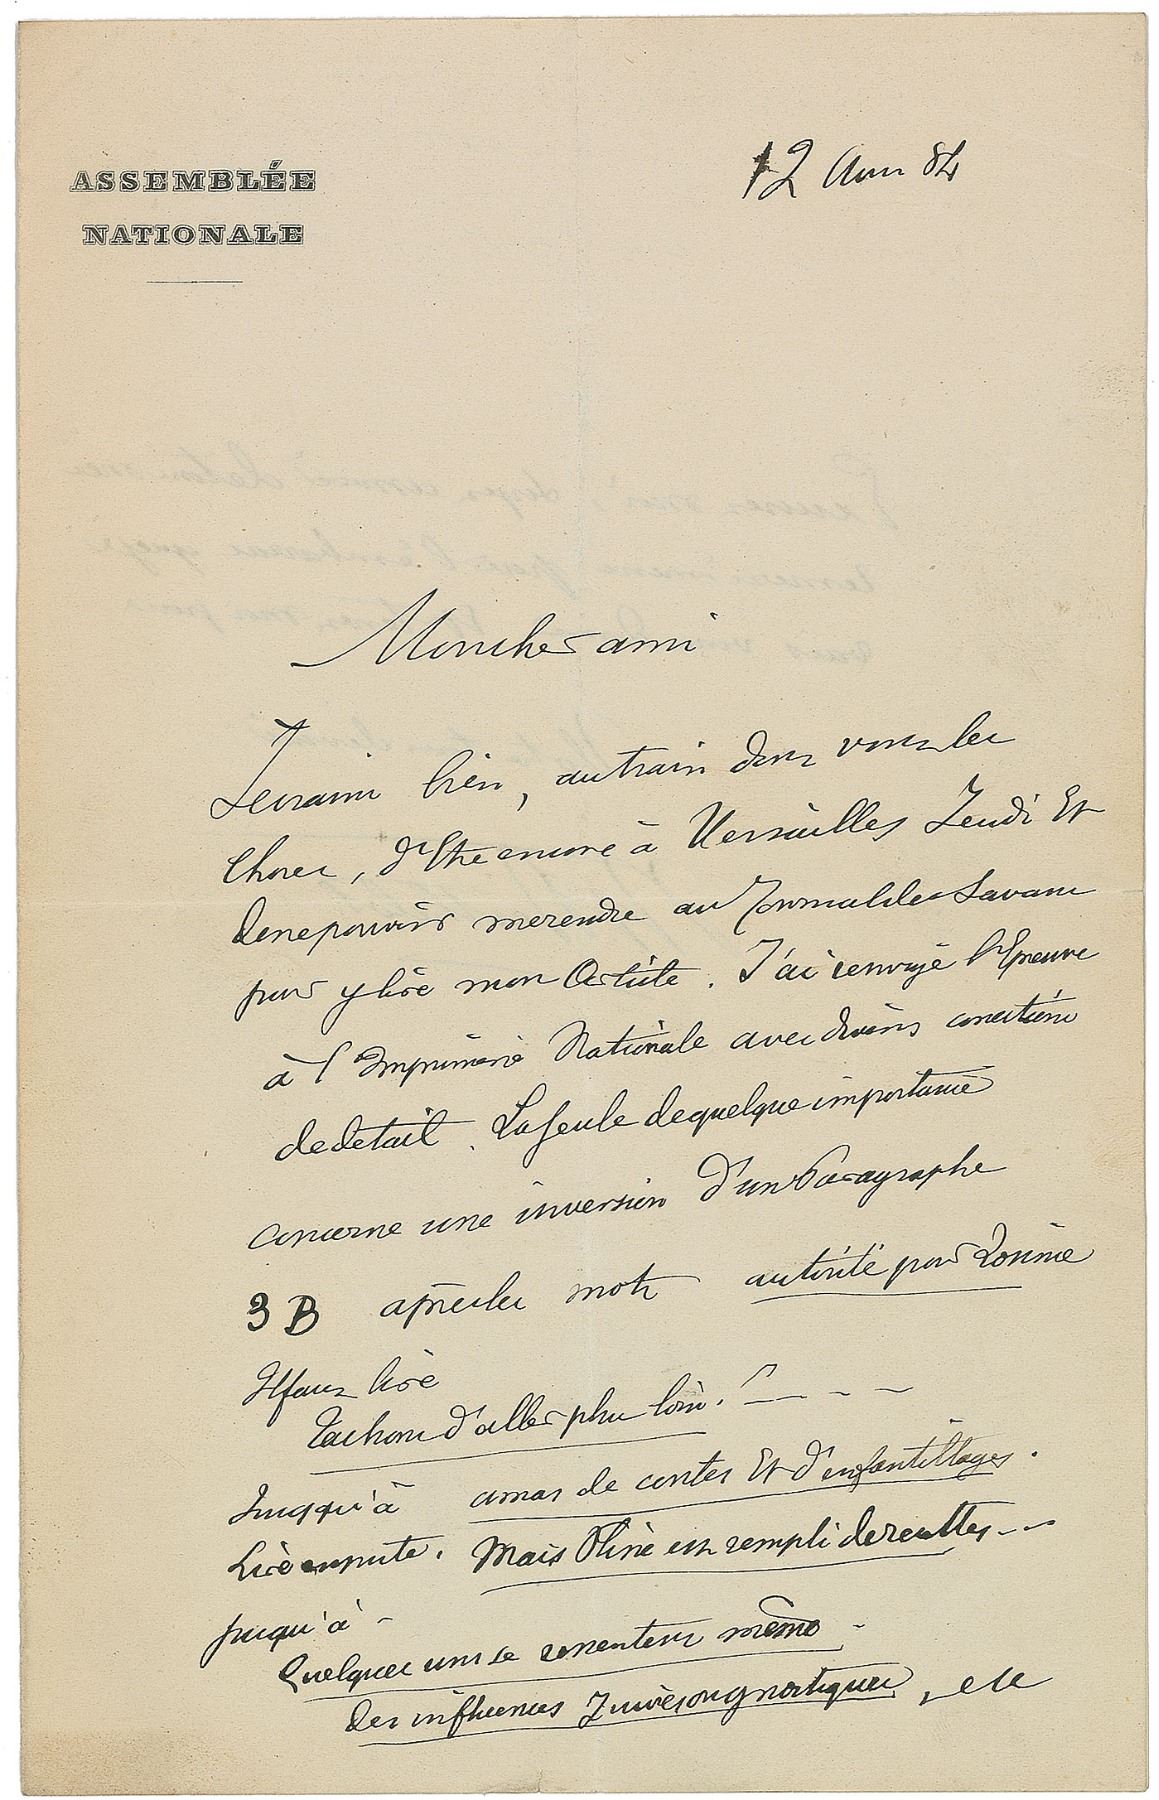 ASSEMBLÉE
NATIONALE
12 Aou 84
Mon cher ami
Je crains bien, au train dont vont les
choses, d'être encore à Versailles Jeudi et
de ne pouvoir me rendre au Journal des Savans
pour y lire mon Article. J'ai renvoyé l'Epreuve
à l'Imprimerie Nationale avec divers corrections
de detail. La seule de quelque importance
concerne une inversion d'un Paragraphe
3 B après les mots autorité pour Zosime
Il faut lire
Tachons d'aller plus loin. - - -
Jusqu'à amas de contes et d'enfantillages.
Lire ensuite. Mais Pline est rempli de recettes - -
jusqu'à -
Quelques uns se ressentent même -
des influences Juives ou gnostiques, etc